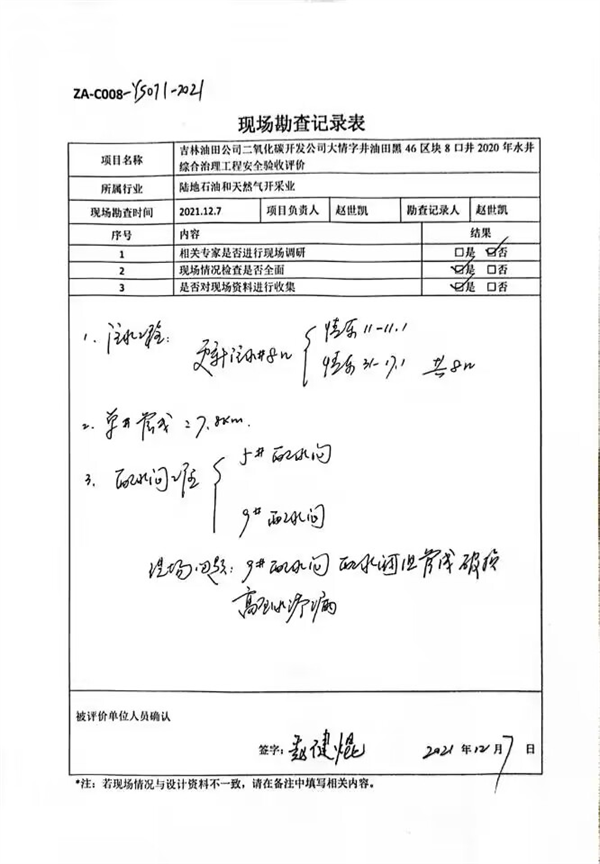 ZA-C008-YS071-2021
现场勘查记录表
项目名称 吉林油田公司二氧化碳开发公司大情字井油田黑 46 区块 8 口井 2020 年水井
综合治理工程安全验收评价
所属行业 陆地石油和天然气开采业
现场勘查时间 2021.12.7 项目负责人 赵世凯 勘查记录人 赵世凯
序号 内容 结果
1 相关专家是否进行现场调研 □是 ☑否
2 现场情况检查是否全面 ☑是 □否
3 是否对现场资料进行收集 ☑是 □否
1. 注水工程:
更新注水井8口
情东11-11.1
情东31-17.1 共8口
2. 单井管线:7.8km.
3. 配水间工程
5# 配水间
9# 配水间
现场问题: 9# 配水间 配水阀组管线破损
高压水
被评价单位人员确认
签字: 2021 年 12 月 7 日
*注:若现场情况与设计资料不一致,请在备注中填写相关内容。